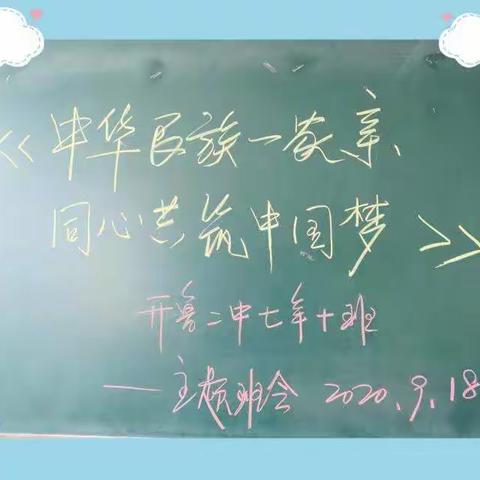 《中华民族一家亲、
同心共筑中国梦》
开鲁二中七年十班
——主题班会 2020.9.18